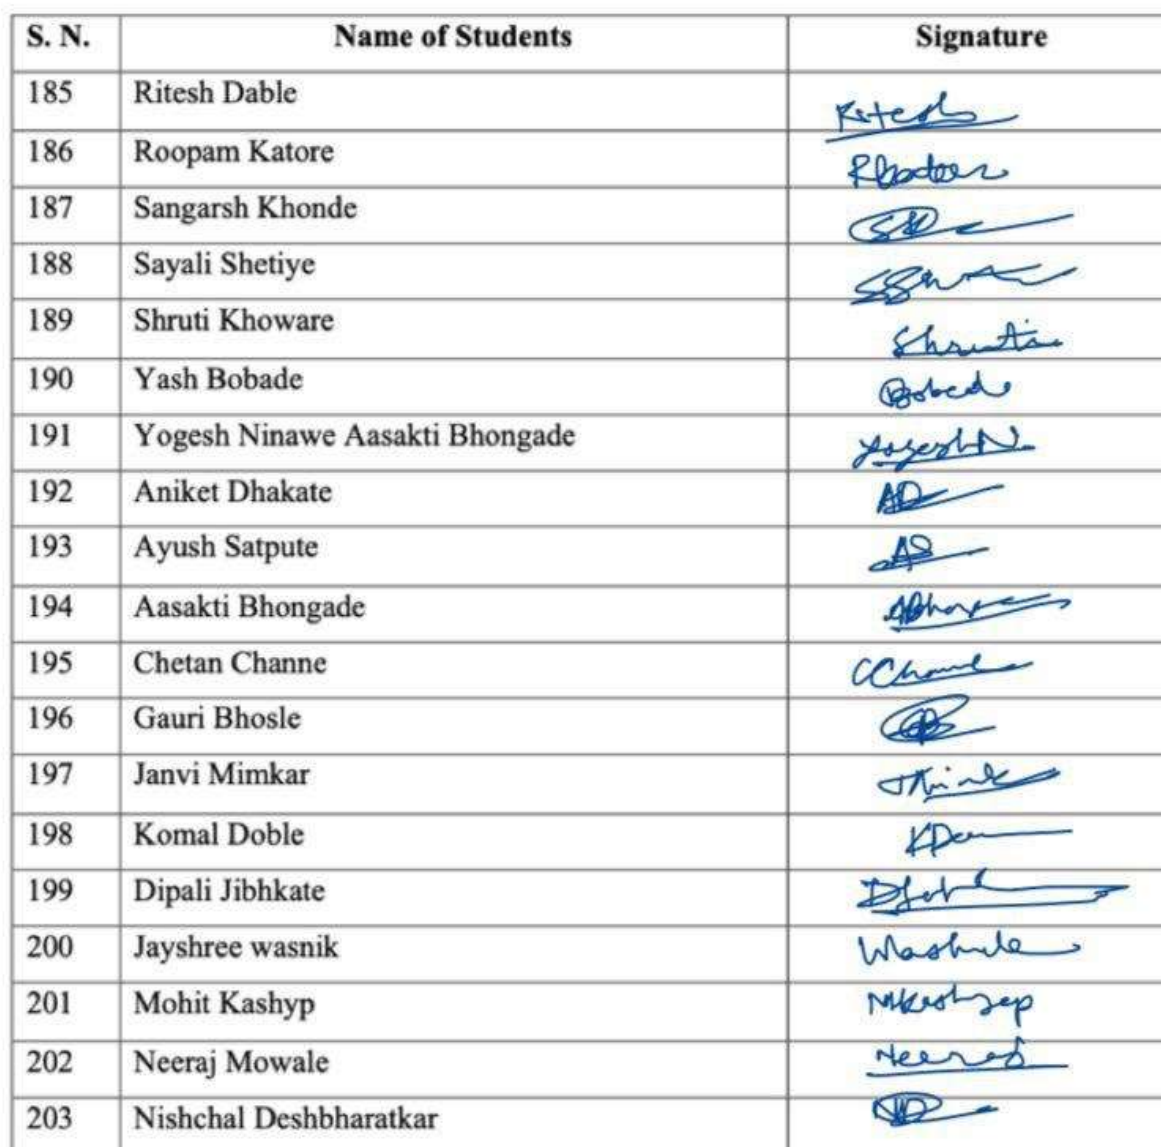 S. N. Name of Students Signature
185 Ritesh Dable Ritesh
186 Roopam Katore
187 Sangarsh Khonde
188 Sayali Shetiye
189 Shruti Khoware Shruti
190 Yash Bobade Bobade
191 Yogesh Ninawe Aasakti Bhongade Yogesh N.
192 Aniket Dhakate AD
193 Ayush Satpute AS
194 Aasakti Bhongade
195 Chetan Channe
196 Gauri Bhosle
197 Janvi Mimkar
198 Komal Doble
199 Dipali Jibhkate
200 Jayshree wasnik
201 Mohit Kashyp MKashyap
202 Neeraj Mowale Neeraj
203 Nishchal Deshbharatkar ND